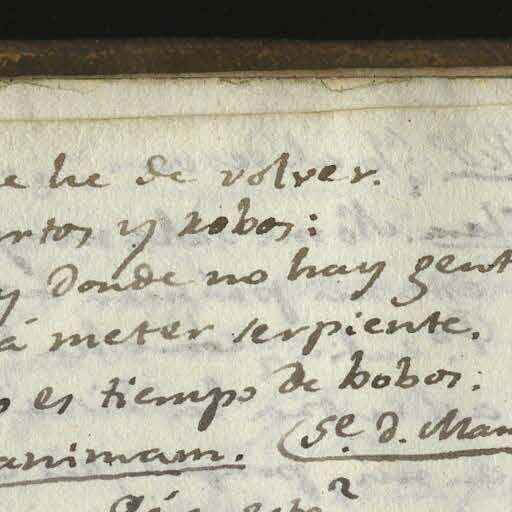 e he de volver.
rtos y robos:
y donde no hay gent
á meter serpiente.
o es tiempo de bobos:
animam. (Se. d. Man